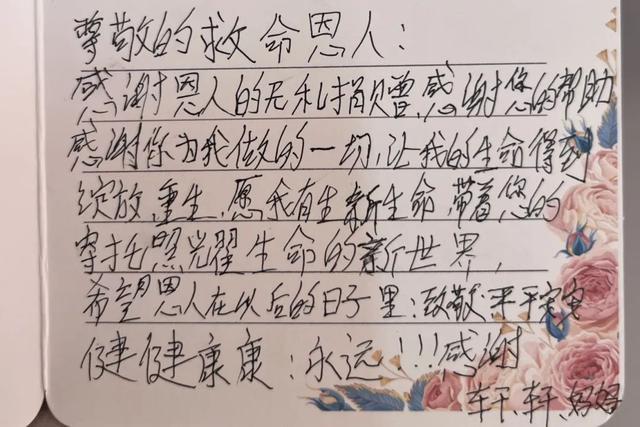 尊敬的救命恩人：
感谢恩人的无私捐赠，感谢您的帮助
感谢你为我做的一切，让我的生命得到
绽放，重生，愿我有生新生命，带着您的
寄托照耀生命的新世界，
希望恩人在以后的日子里：致敬·平平安安
健健康康：永远！！！感谢
轩、轩、妈妈